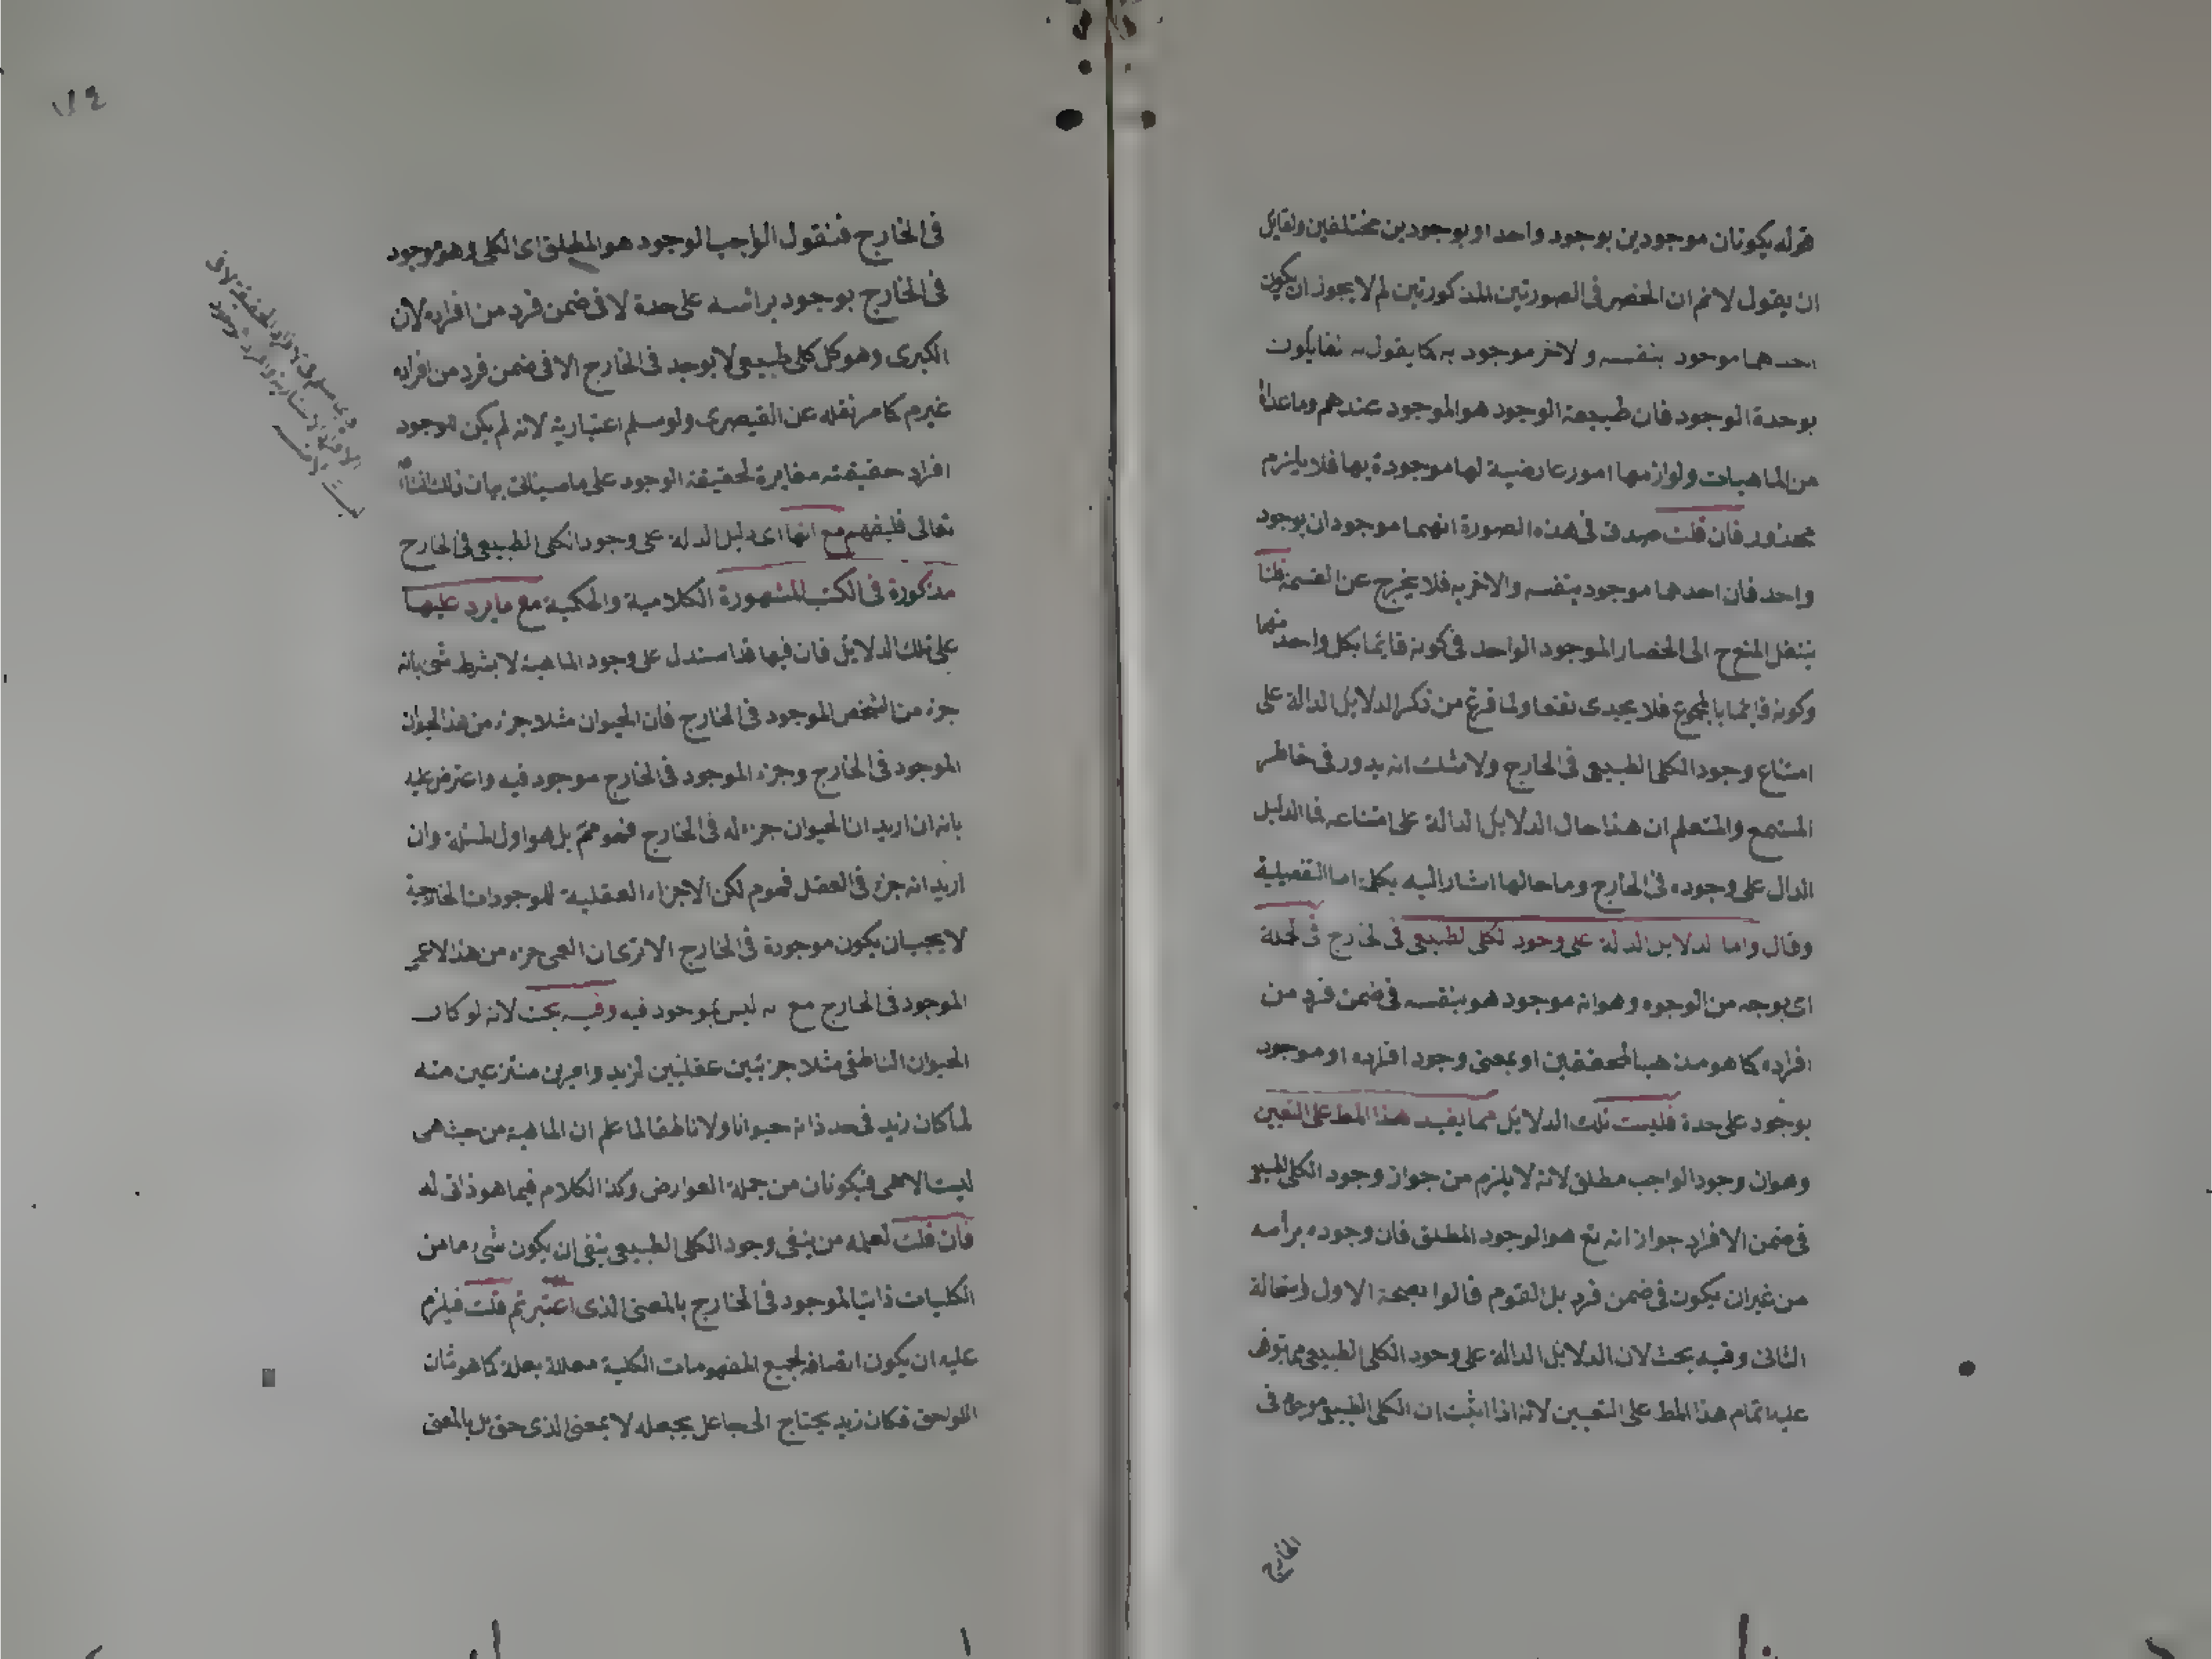 قوله يكونان موجودين بوجود واحد او بوجودين مختلفين ولقايل
ان يقول لانم ان الحصر فى الصورتين المذكورتين لم لا يجوز ان يكون
احدهما موجود بنفسه والاخر موجود به كما يقول به القايلون
بوحدة الوجود فان طبيعة الوجود هو الموجود عندهم وما عداه
من الماهيات ولوازمها امور عارضية لها موجودة بها فلا يلزم
محذور فان قلت صدق فى هذه الصورة انهما موجودان بوجود
واحد فان احدهما موجود بنفسه والاخر به فلا يخرج عن القسمة قلنا
ينتقل المنع ح الى انحصار الموجود الواحد فى كونه قايما بكل واحد منهما
وكونه قايما بالمجموع فلا يجدى نفعا ولما فرغ من ذكر الدلايل الدالة على
امتناع وجود الكلى الطبيعى فى الخارج ولا شك انه يدور فى خاطر
المستمع والمتعلم ان هذا حال الدلايل الدالة على امتناعه فما الدليل
الدال على وجوده فى الخارج وما حالها اشار اليه بكلمة اما التفصيلية
وقال واما الدلايل الدالة على وجود الكلى الطبيعى فى الخارج فى الجملة
اى بوجه من الوجوه وهو انه موجود هو بنفسه فى ضمن فرد من
افراده كما هو مذهب المحققين او بمعنى وجود افراده او موجود
بوجود على حدة فليست تلك الدلايل مما يفيد هذا المط على التعيين
وهو ان وجود الواجب مطلق لانه لا يلزم من جواز وجود الكلى الطبيعى
فى ضمن الافراد جواز انه تع هو الوجود المطلق فان وجوده برأسه
من غير ان يكون فى ضمن فرد بل القوم قالوا بصحة الاول واستحالة
الثانى وفيه بحث لان الدلايل الدالة على وجود الكلى الطبيعى مما يتوقف
عليه اتمام هذا المط على التعيين لانه اذا اثبت ان الكلى الطبيعى موجود فى
الخارج
فى الخارج فنقول الواجب الوجود هو المطلق اى الكلى وهو موجود
فى الخارج بوجود برأسه على حدة لا فى ضمن فرد من افراده لان
الكبرى وهو كل كلى طبيعى لا يوجد فى الخارج الا فى ضمن فرد من افراده
غيرم كما مر نقله عن القيصرى ولو سلم اعتبارية لانه لم يكن الوجود
افراد حقيقته مغايرة لحقيقة الوجود على ما سيأتى بيان ذلك انشاء الله
تعالى فليفهم مع انها اى دليل الدالة على وجود الكلى الطبيعى فى الخارج
مذكورة فى الكتب المشهورة الكلامية والحكمية مع ما يرد عليها
على تلك الدلايل فان فيها قد استدل على وجود الماهية لا بشرط شى بانه
جزء من الشخص الموجود فى الخارج فان الحيوان مثلا جزء من هذا الحيوان
الموجود فى الخارج وجزء الموجود فى الخارج موجود فيه واعترض عليه
بانه ان اريد ان الحيوان جزء له فى الخارج فهو مم بل هو اول المسئلة وان
اريد انه جزء فى العقل فهو م لكن الاجزاء العقلية للموجودات الخارجية
لا يجب ان يكون موجودة فى الخارج الا ترى ان العمى جزء من هذا الاعمى
الموجود فى الخارج مع انه ليس بموجود فيه وفيه بحث لانه لو كان
الحيوان الناطق مثلا جزئين عقليين لزيد وامرين منتزعين منه
لما كان زيد فى حد ذاته حيوانا ولا ناطقا لما علم ان الماهية من حيث هى
ليست الا هى فيكونان من جملة العوارض وكذا الكلام فيما هو ذاتى له
فان قلت لعله من ينفى وجود الكلى الطبيعى ينفى ان يكون شىء ما من
الكليات ذاتيا للموجود فى الخارج بالمعنى الذى اعتبرتم قلت فيلزم
عليه ان يكون اتصافه بجميع المفهومات الكلية معللا بعلة كما هو شان
اللواحق فكان زيد يحتاج الى جاعل يجعله لا بمعنى الذى حق بل بالمعنى